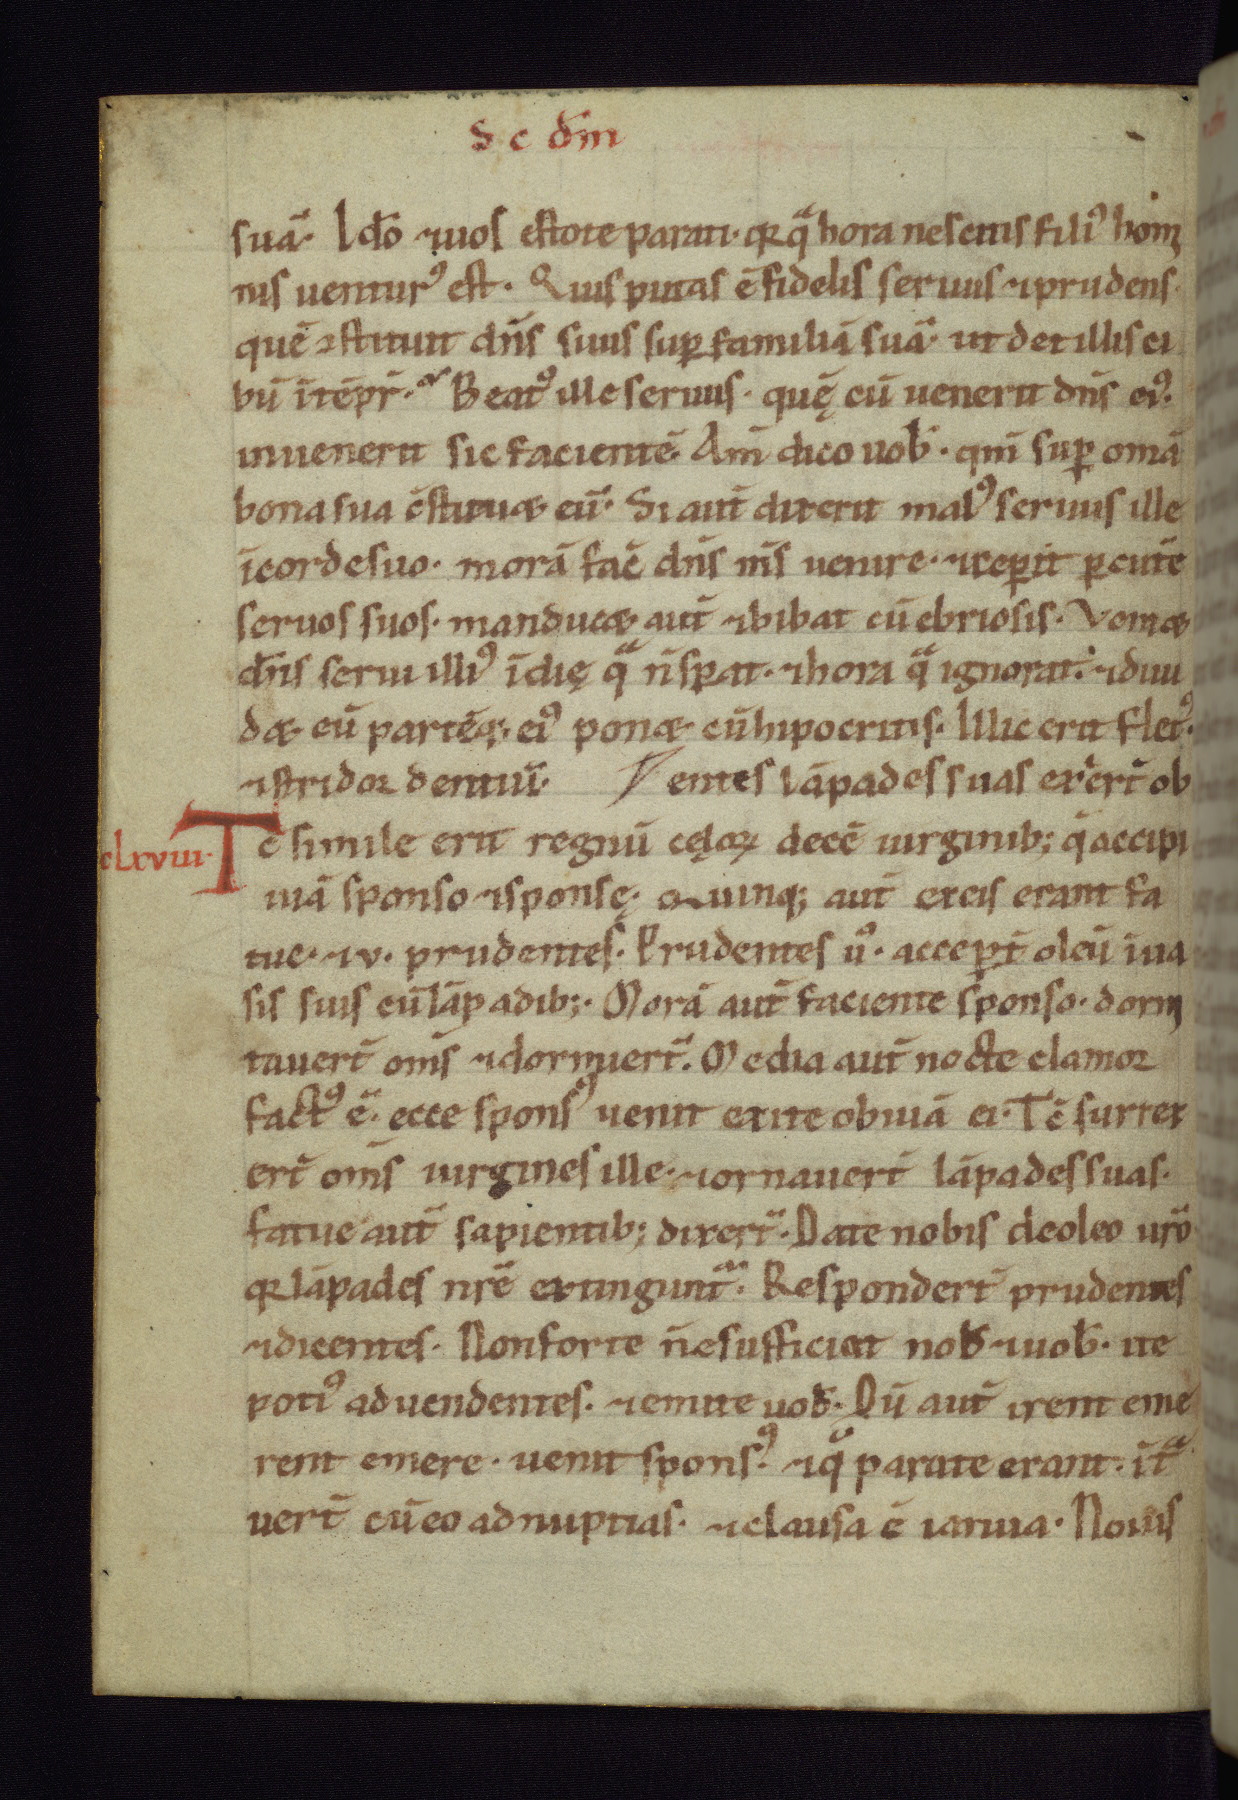 S c dm̄
suā· Ido ⁊uos estote parati· qꝛ qͣ hora nescitis filiꝰ homi
nis uenturꝰ est· Quis putas ē fidelis seruus ⁊prudens·
quē ꝯstituit dn̄s suus suꝑ familiā suā· ut det illis ci
bū ītēpr̄· Beatꝰ ille seruus· quę cū uenerit dn̄s eiꝰ·
inuenerit sic facientē· Am̄ dico uob̄· qm̄ suꝑ omā
bona sua ēstituæ eū· Si aut̄ dixerit malꝰ seruus ille
ī corde suo· morā fac̄ dn̄s m̄s uenire· ⁊ceꝑit ꝑcutē
seruos suos· manducæ aut̄ ⁊bibat cū ebriosis· Veniæ
dn̄s serui illiꝰ ī dię qͣ n̄ sꝑat· ⁊hora qͣ ignorat· ⁊diui
dæ eū partēq; eiꝰ ponæ cū hipocritis· Illic erit fletꝰ·
⁊stridoꝛ dentiū· entes lāpades suas exͥert̄ ob
clxviii· Tc̄ simile erit regnū cęloꝝ decē uirginib; q̄ accipi
uiā sponso ⁊sponsę· Quinq; aut̄ ex eis erant fa
tue· ⁊v· prudentes· Prudentes u̇· acceꝑt̄ oleū ī ua
sis suis cū lāpadib;· Morā aut̄ faciente sponso· dormi
tauert̄ om̄s ⁊dormiert̄· Media aut̄ nocte clamoꝛ
factꝰ ē· ecce sponsꝰ uenit exite obuiā ei· Tc̄ surrex
ert̄ om̄s uirgines ille· ⁊ornauert̄ lāpades suas·
fatue aut̄ sapientib; dixert̄· Date nobis de oleo ur̄o
qꝛ lāpades nr̄e extingunt̄· Respondert̄ prudentes
⁊dicentes· Non forte n̄e sufficiat nob̄ ⁊uob̄· ite
potiꝰ ad uendentes· ⁊emite uob̄· Dū aut̄ irent eme
rent emere· uenit sponsꝰ· ⁊qͣ parate erant· īt̄ͣ
uert̄ cū eo ad nuptias· ⁊clausa ē ianua· Nouis